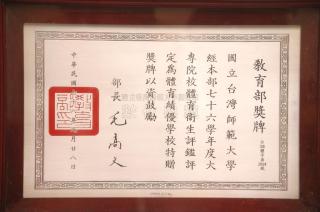 教育部獎牌
國立台灣師範大學
經本部七十六學年度大
專院校體育衛生評鑑評
定為體育績優學校特贈
獎牌以資鼓勵
部長 毛高文
中華民國
月廿八日